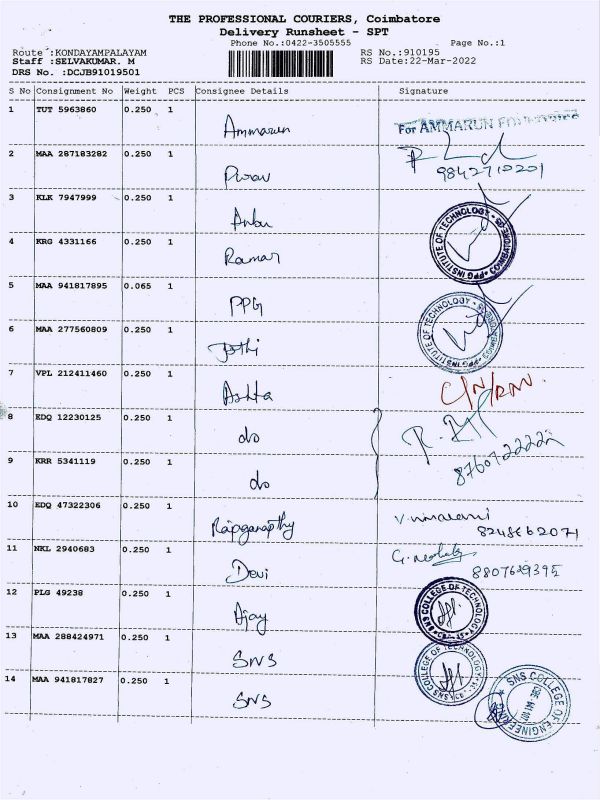 THE PROFESSIONAL COURIERS, Coimbatore
Delivery Runsheet - SPT
Phone No.:0422-3505555 Page No.:1
Route :KONDAYAMPALAYAM RS No.:910195
Staff :SELVAKUMAR. M RS Date:22-Mar-2022
DRS No. :DCJB91019501
S No Consignment No Weight PCS Consignee Details Signature
1 TUT 5963860 0.250 1 Ammarun For AMMARUN
2 MAA 287183282 0.250 1 9842710201
3 KLK 7947999 0.250 1 Anbu PPG INSTITUTE OF TECHNOLOGY COIMBATORE
4 KRG 4331166 0.250 1 Ramar
5 MAA 941817895 0.065 1 PPG PPG INSTITUTE OF TECHNOLOGY
6 MAA 277560809 0.250 1
7 VPL 212411460 0.250 1 Ashta
8 EDQ 12230125 0.250 1 do
9 KRR 5341119 0.250 1 do
10 EDQ 47322306 0.250 1 8248662071
11 NKL 2940683 0.250 1 Devi 8807629395
12 PLG 49238 0.250 1 Ajay SNS COLLEGE OF TECHNOLOGY
13 MAA 288424971 0.250 1 SNS SNS COLLEGE OF TECHNOLOGY
14 MAA 941817827 0.250 1 SNS SNS COLLEGE OF